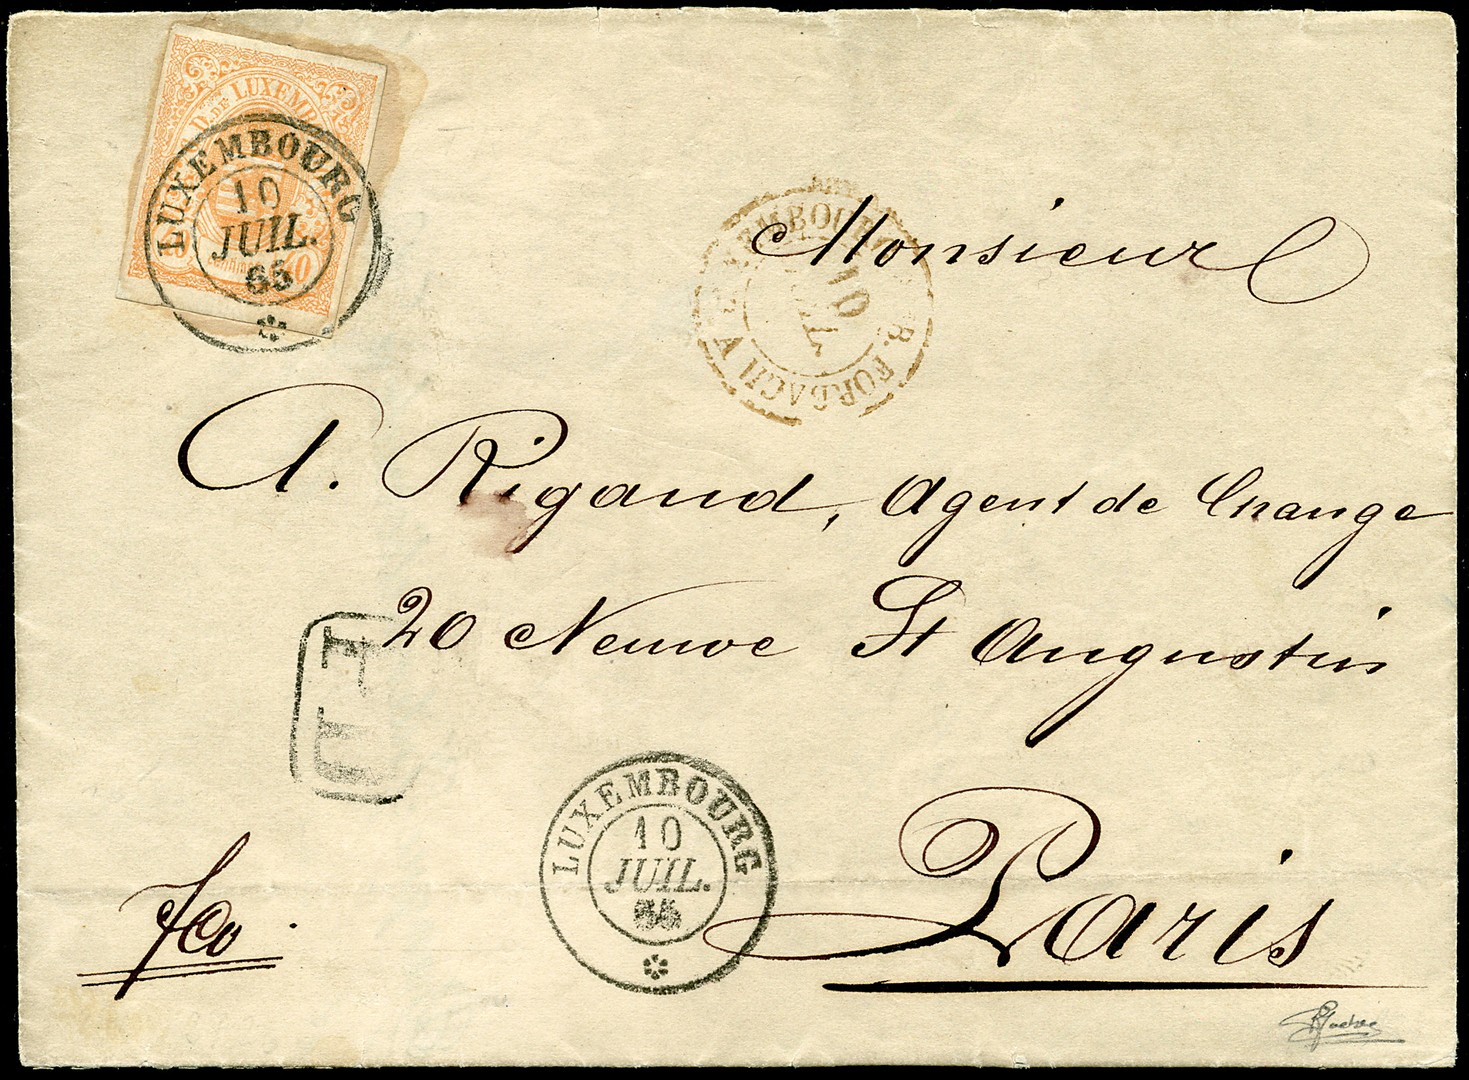 G.D. DE LUXEMB
LUXEMBOURG
10
JUIL.
65
40
EMBOURG
10
JUIL
B. FORBACH A
Monsieur
A. Rigaud, Agent de Change
20 Neuve St Augustin
fco.
LUXEMBOURG
10
JUIL.
Paris